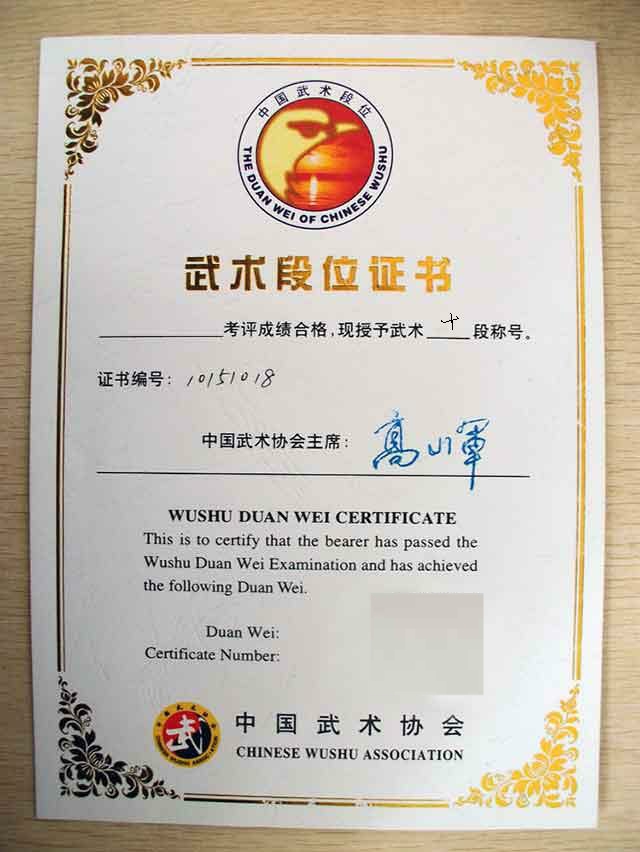 中国武术段位
THE DUAN WEI OF CHINESE WUSHU
武术段位证书
考评成绩合格,现授予武术 十 段称号。
证书编号: 10151018
中国武术协会主席: 高山军
WUSHU DUAN WEI CERTIFICATE
This is to certify that the bearer has passed the
Wushu Duan Wei Examination and has achieved
the following Duan Wei.
Duan Wei:
Certificate Number:
武
中国武术协会
CHINESE WUSHU ASSOCIATION
CHINESE WUSHU ASSOCIATION